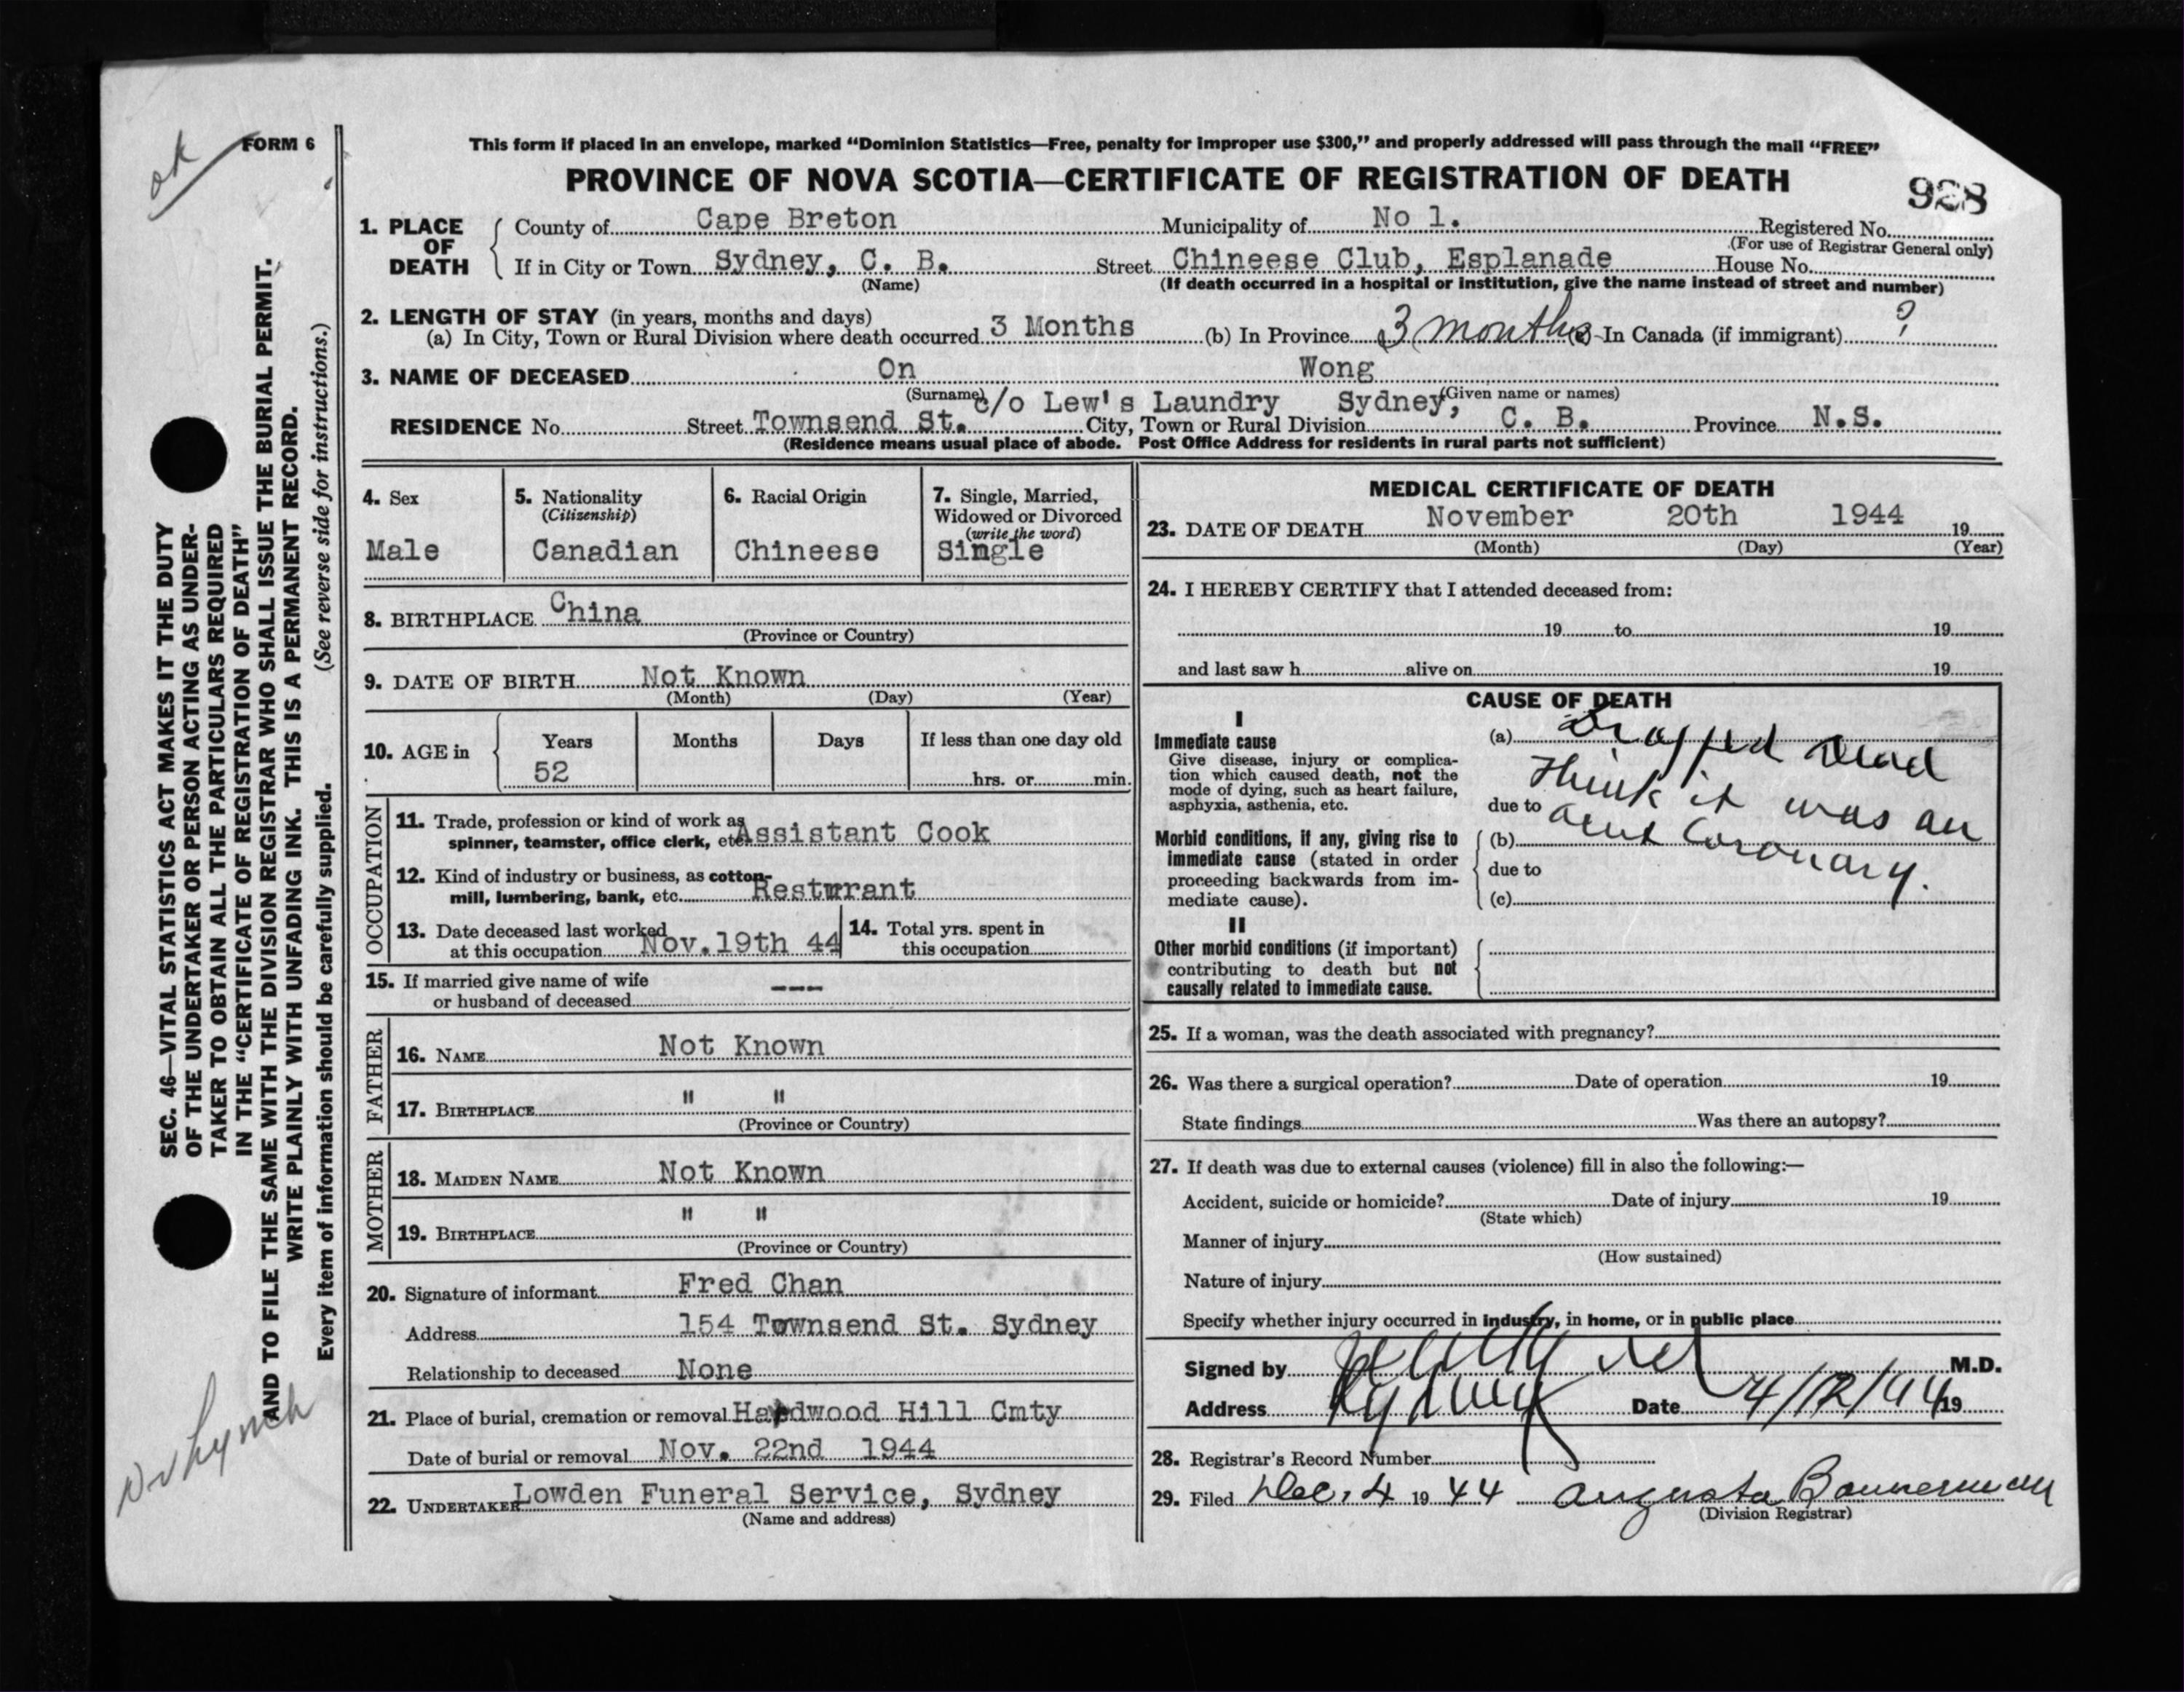 ok
FORM 6
This form if placed in an envelope, marked “Dominion Statistics—Free, penalty for improper use $300,” and properly addressed will pass through the mail “FREE”
PROVINCE OF NOVA SCOTIA—CERTIFICATE OF REGISTRATION OF DEATH
928
1. PLACE OF DEATH
County of Cape Breton Municipality of No 1. Registered No.
(For use of Registrar General only)
If in City or Town Sydney, C. B. Street Chineese Club, Esplanade House No.
(Name) (If death occurred in a hospital or institution, give the name instead of street and number)
2. LENGTH OF STAY (in years, months and days)
(a) In City, Town or Rural Division where death occurred 3 Months (b) In Province 3 months (c) In Canada (if immigrant) ?
3. NAME OF DECEASED On Wong
(Surname) (Given name or names)
c/o Lew's Laundry Sydney,
RESIDENCE No. Street Townsend St. City, Town or Rural Division C. B. Province N.S.
(Residence means usual place of abode. Post Office Address for residents in rural parts not sufficient)
4. Sex
Male
5. Nationality
(Citizenship)
Canadian
6. Racial Origin
Chineese
7. Single, Married,
Widowed or Divorced
(write the word)
Single
8. BIRTHPLACE China
(Province or Country)
9. DATE OF BIRTH Not Known
(Month) (Day) (Year)
10. AGE in
Years Months Days If less than one day old
52 hrs. or min.
OCCUPATION
11. Trade, profession or kind of work as
spinner, teamster, office clerk, etc. Assistant Cook
12. Kind of industry or business, as cotton-
mill, lumbering, bank, etc. Resturant
13. Date deceased last worked
at this occupation Nov.19th 44
14. Total yrs. spent in
this occupation
15. If married give name of wife
or husband of deceased ---
FATHER
16. NAME Not Known
17. BIRTHPLACE " "
(Province or Country)
MOTHER
18. MAIDEN NAME Not Known
19. BIRTHPLACE " "
(Province or Country)
20. Signature of informant Fred Chan
Address 154 Townsend St. Sydney
Relationship to deceased None
21. Place of burial, cremation or removal Hardwood Hill Cmty
Date of burial or removal Nov. 22nd 1944
22. UNDERTAKER Lowden Funeral Service, Sydney
(Name and address)
MEDICAL CERTIFICATE OF DEATH
23. DATE OF DEATH November 20th 1944 19
(Month) (Day) (Year)
24. I HEREBY CERTIFY that I attended deceased from:
19 to 19
and last saw h alive on 19
CAUSE OF DEATH
I
Immediate cause
Give disease, injury or complica-
tion which caused death, not the
mode of dying, such as heart failure,
asphyxia, asthenia, etc.
Morbid conditions, if any, giving rise to
immediate cause (stated in order
proceeding backwards from im-
mediate cause).
(a) Dropped Dead
Think it was an
due to
(b) Coronary.
due to
(c)
II
Other morbid conditions (if important)
contributing to death but not
causally related to immediate cause.
25. If a woman, was the death associated with pregnancy?
26. Was there a surgical operation? Date of operation 19
State findings Was there an autopsy?
27. If death was due to external causes (violence) fill in also the following:—
Accident, suicide or homicide? Date of injury 19
(State which)
Manner of injury
(How sustained)
Nature of injury
Specify whether injury occurred in industry, in home, or in public place
Signed by M.D.
Address Sydney Date 4/12/44 19
28. Registrar's Record Number
29. Filed Dec. 4 19 44 Augusta Bannerman
(Division Registrar)
SEC. 46—VITAL STATISTICS ACT MAKES IT THE DUTY
OF THE UNDERTAKER OR PERSON ACTING AS UNDER-
TAKER TO OBTAIN ALL THE PARTICULARS REQUIRED
IN THE “CERTIFICATE OF REGISTRATION OF DEATH”
AND TO FILE THE SAME WITH THE DIVISION REGISTRAR WHO SHALL ISSUE THE BURIAL PERMIT.
WRITE PLAINLY WITH UNFADING INK. THIS IS A PERMANENT RECORD.
Every item of information should be carefully supplied. (See reverse side for instructions.)
Dr Lynch